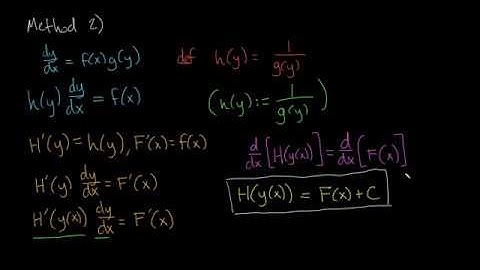 Method 2)
dy/dx = f(x)g(y)
def h(y) = 1/g(y)
h(y) dy/dx = f(x)
(h(y) := 1/g(y))
H'(y) = h(y), F'(x) = f(x)
H'(y) dy/dx = F'(x)
H'(y(x)) dy/dx = F'(x)
d/dx [H(y(x))] = d/dx [F(x)]
H(y(x)) = F(x) + C